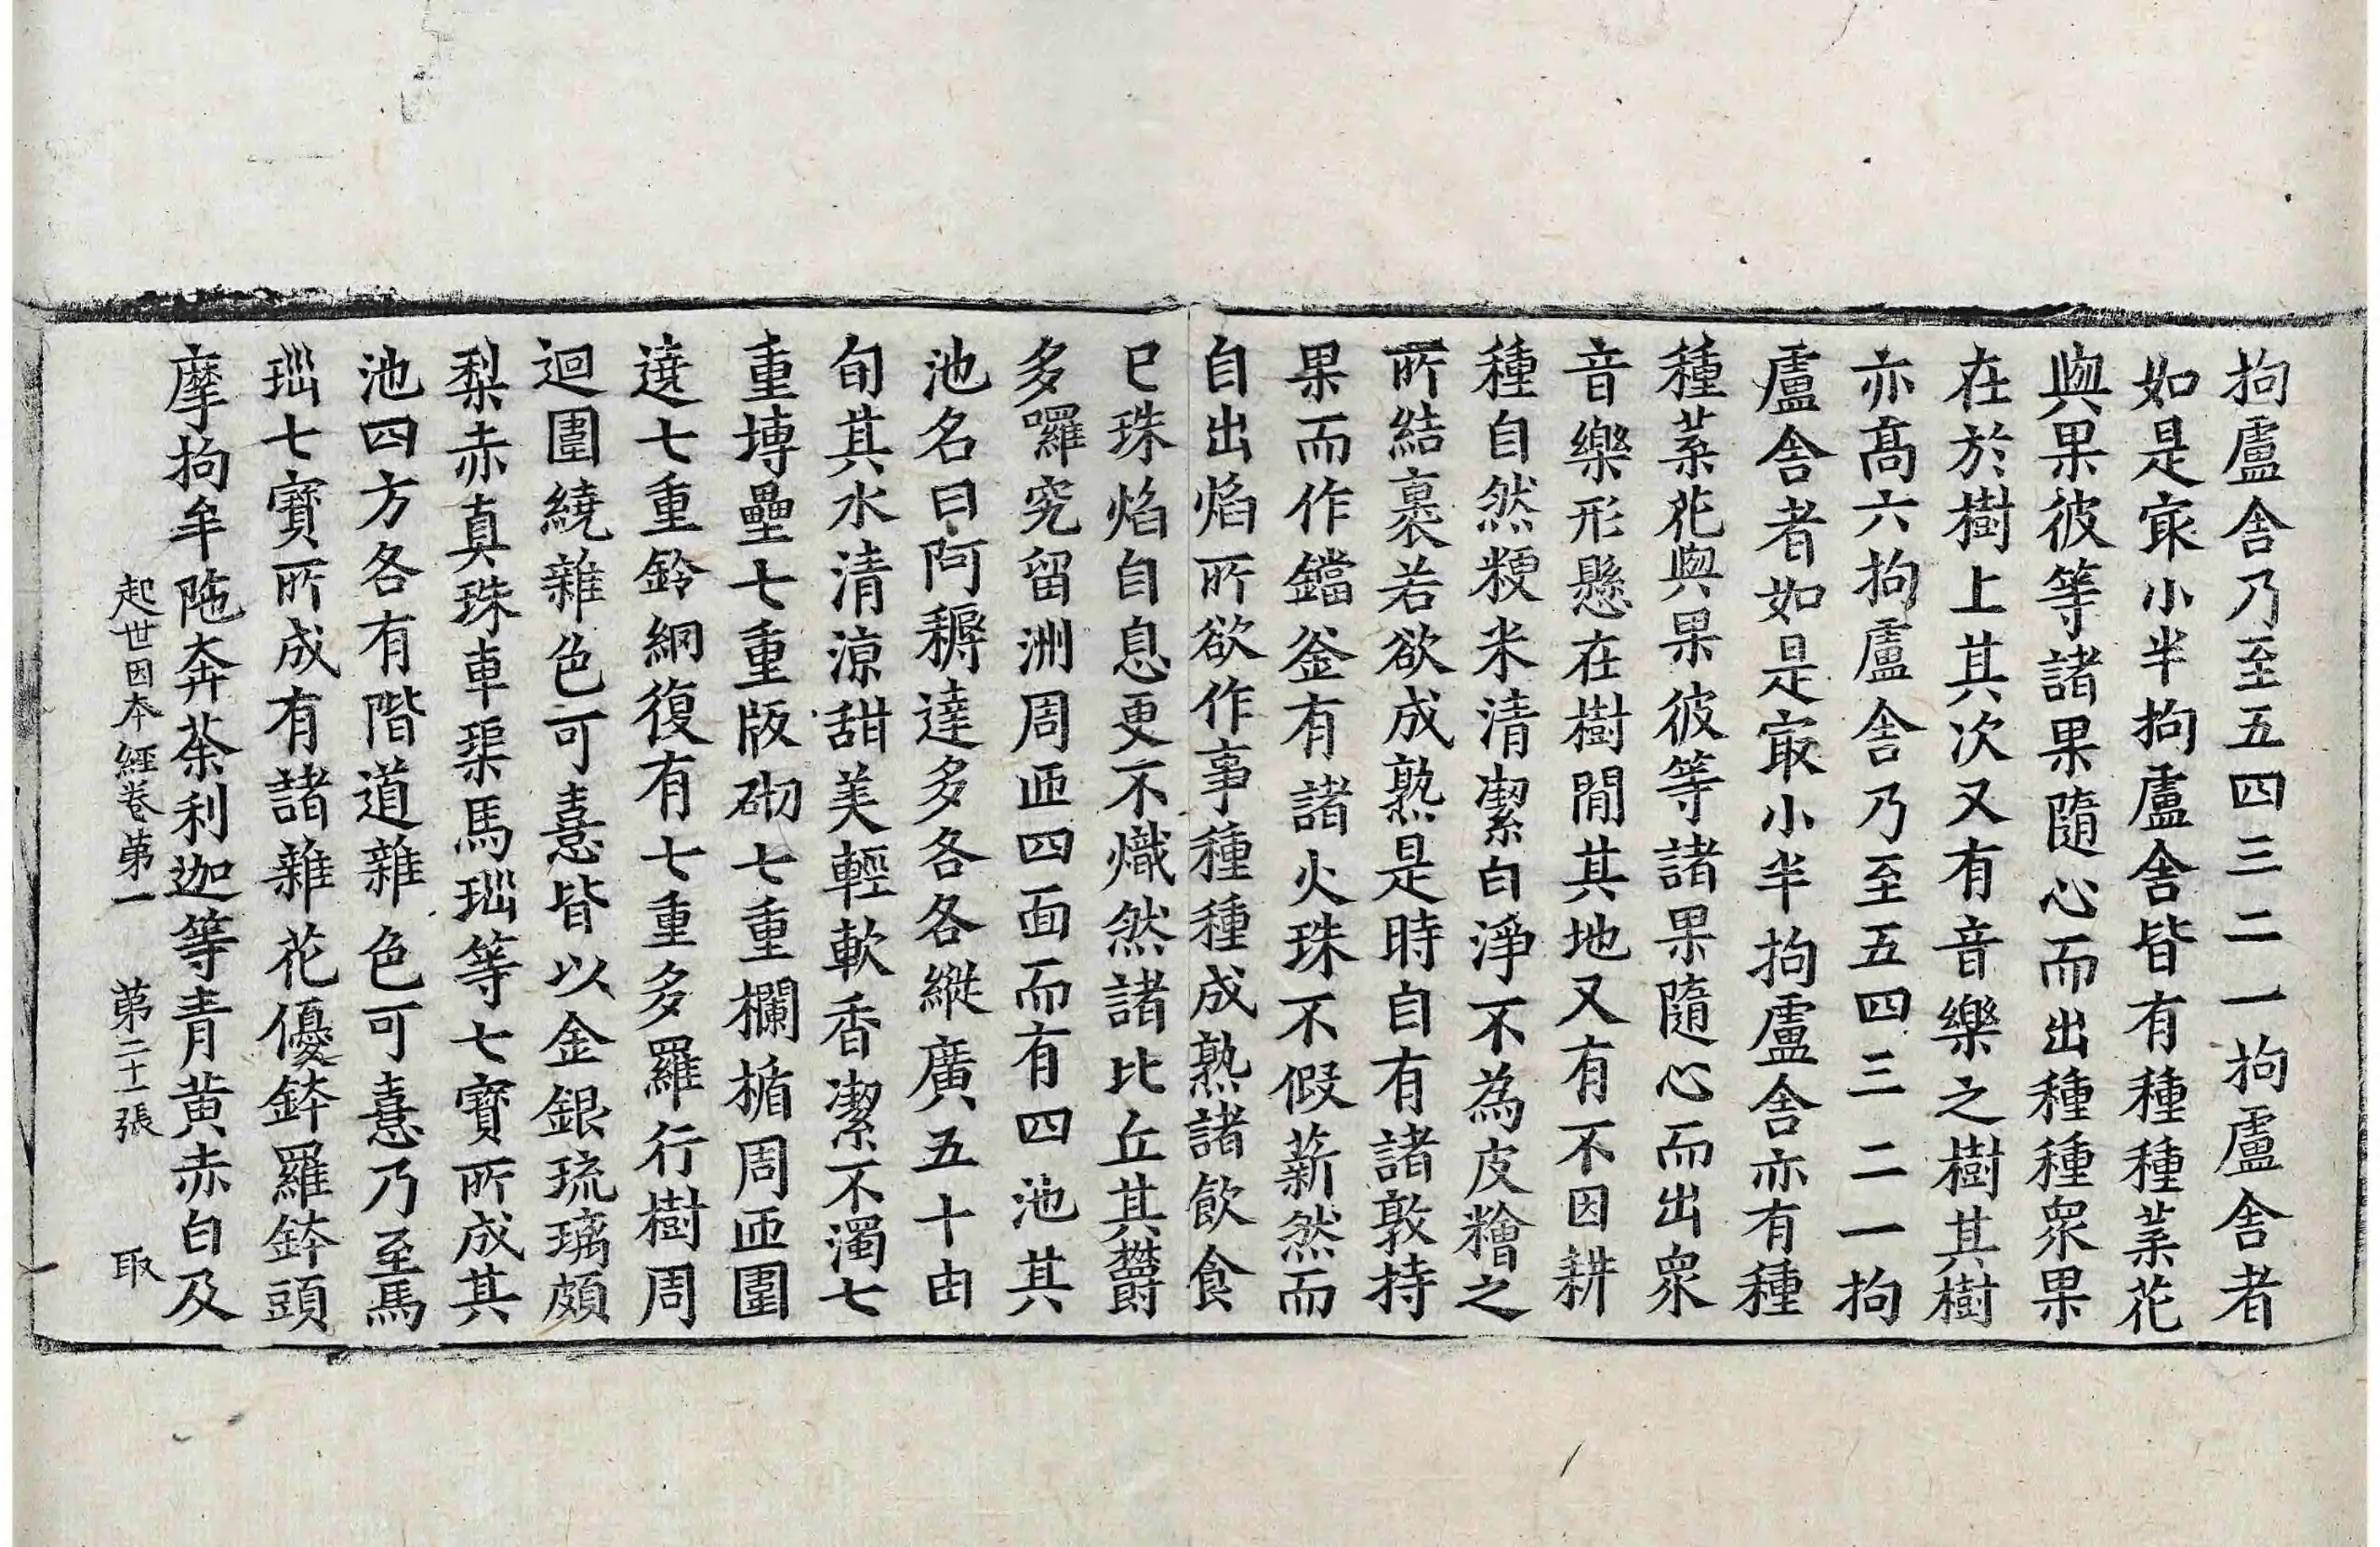 拘盧舍乃至五四三二一拘盧舍者
如是㝡小半拘盧舍皆有種種葉花
與果彼等諸果隨心而出種種衆果
在於樹上其次又有音樂之樹其樹
亦高六拘盧舍乃至五四三二一拘
盧舍者如是㝡小半拘盧舍亦有種
種葉花與果彼等諸果隨心而出衆
音樂形懸在樹閒其地又有不因耕
種自然粳米清潔白淨不為皮糩之
所結裹若欲成熟是時自有諸敦持
果而作鐺釜有諸火珠不假薪然而
自出焰所欲作事種種成熟諸飲食
已珠焰自息更不熾然諸比丘其欝
多囉究留洲周迊四面而有四池其
池名曰阿耨達多各各縱廣五十由
旬其水清涼甜美輕軟香潔不濁七
重塼壘七重版砌七重欄楯周迊圍
遶七重鈴網復有七重多羅行樹周
迴圍繞雜色可憙皆以金銀琉璃頗
梨赤真珠車𤦲馬瑙等七寶所成其
池四方各有階道雜色可憙乃至馬
瑙七寶所成有諸雜花優鉢羅鉢頭
摩拘牟陁奔茶利迦等青黃赤白及
起世因本經卷第一 第二十一張 取